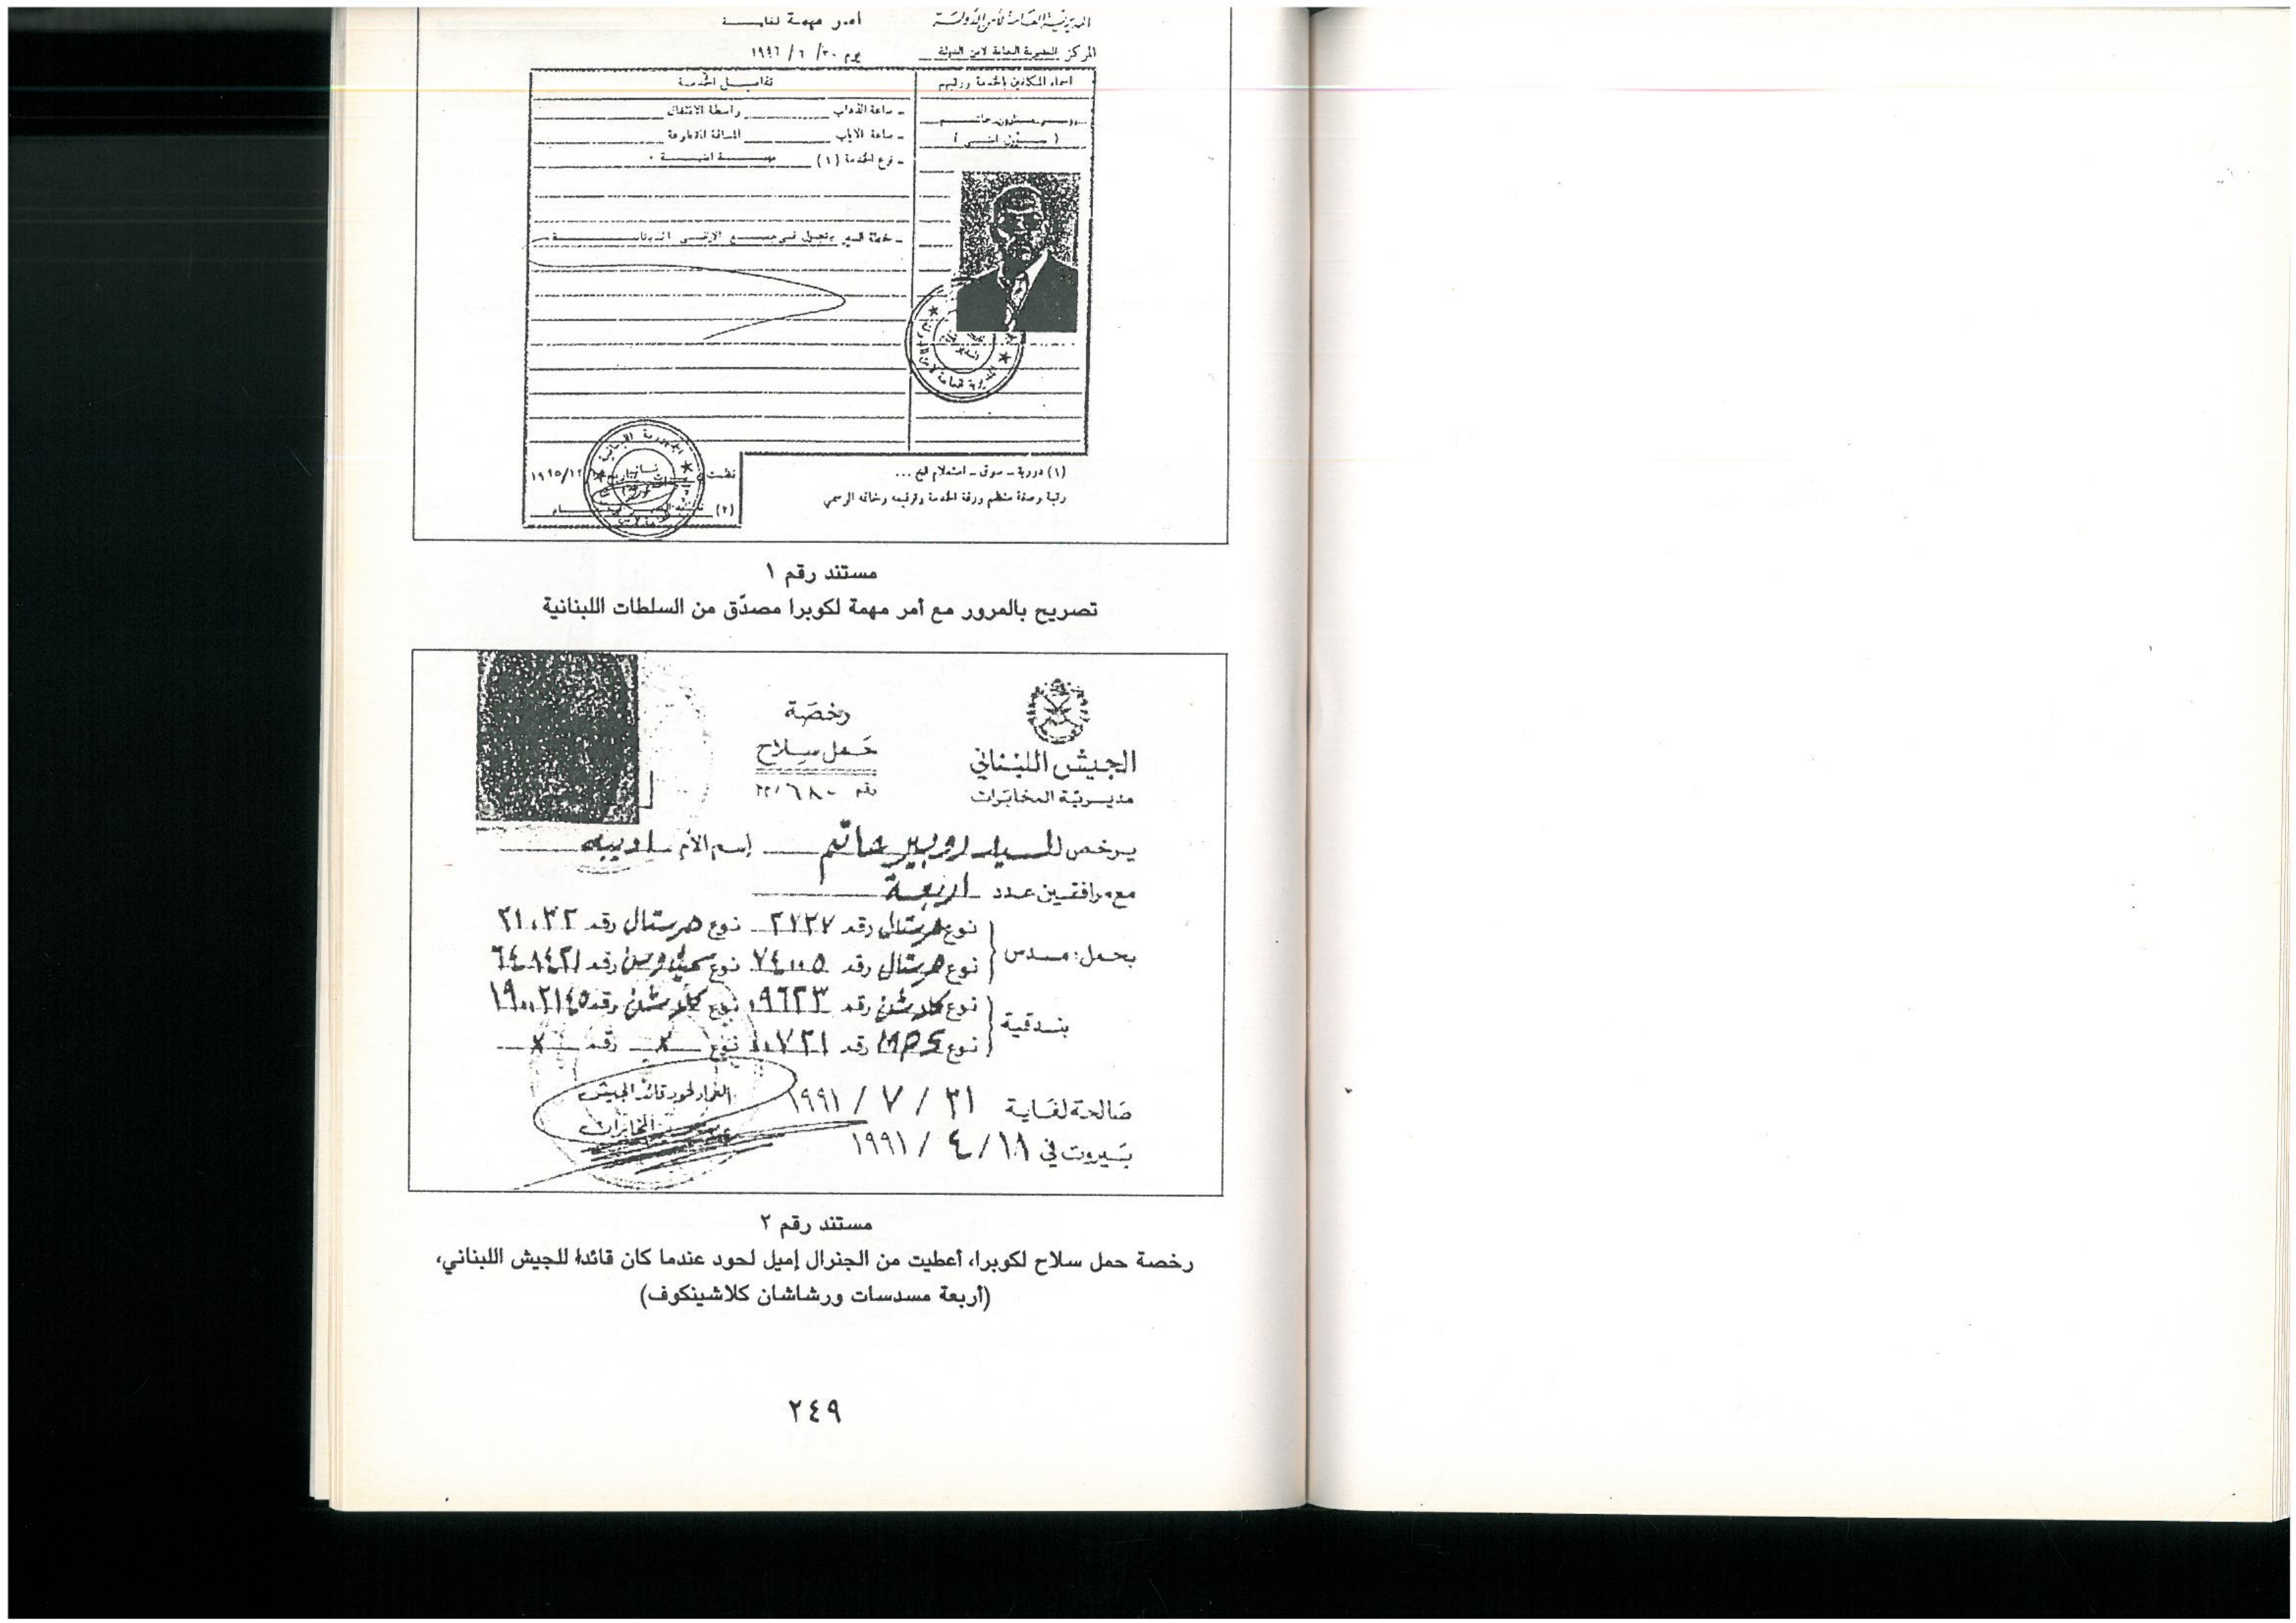 المديرية العامة لأمن الدولة
أمر مهمة لغاية
المركز المديرية العامة لامن الدولة
يوم ٣٠/ ٦ / ١٩٩٦
اسماء المكلفين بالخدمة ورتبهم
تفاصيل الخدمة
- ساعة الذهاب
واسطة الانتقال
روبير مارون حاتم
( مسؤول امني )
- ساعة الاياب
المسافة المقطوعة
- نوع الخدمة (١) مهمة امنية .
- خطة السير يتجول في جميع الاراضي اللبنانية
(١) دورية - سوق - استعلام الخ ...
رتبة وصفة منظم ورقة الخدمة وتوقيعه وخاتمه الرسمي
نظمت
١٩٩٥/١٢
(٢)
مستند رقم ١
تصريح بالمرور مع أمر مهمة لكوبرا مصدّق من السلطات اللبنانية
الجيش اللبناني
مديرية المخابرات
رخصة
حمل سلاح
رقم ٢٢/٦٨٠
يرخص للسيد روبير حاتم إسم الأم لوديبه
مع مرافقين عدد اربعة
بحمل: مسدس
نوع هرستال رقم ٢٦٢٧ نوع هرستال رقم ٢١٠٣٢
نوع هرستال رقم ٧٤٠٠٥ نوع رقم ٦٤٨٤٢١
بندقية
نوع كلاشن رقم ٠٩٦٢٣ نوع كلاشن رقم ١٩٠٠٢١٤٥
نوع MP5 رقم ١٠٧٢١ نوع x رقم x
صالحة لغاية ٣١ / ٧ / ١٩٩١
بيروت في ١٨ / ٤ / ١٩٩١
العماد لحود قائد الجيش
المخابرات
مستند رقم ٢
رخصة حمل سلاح لكوبرا، أعطيت من الجنرال إميل لحود عندما كان قائداً للجيش اللبناني،
(أربعة مسدسات ورشاشان كلاشينكوف)
٢٤٩